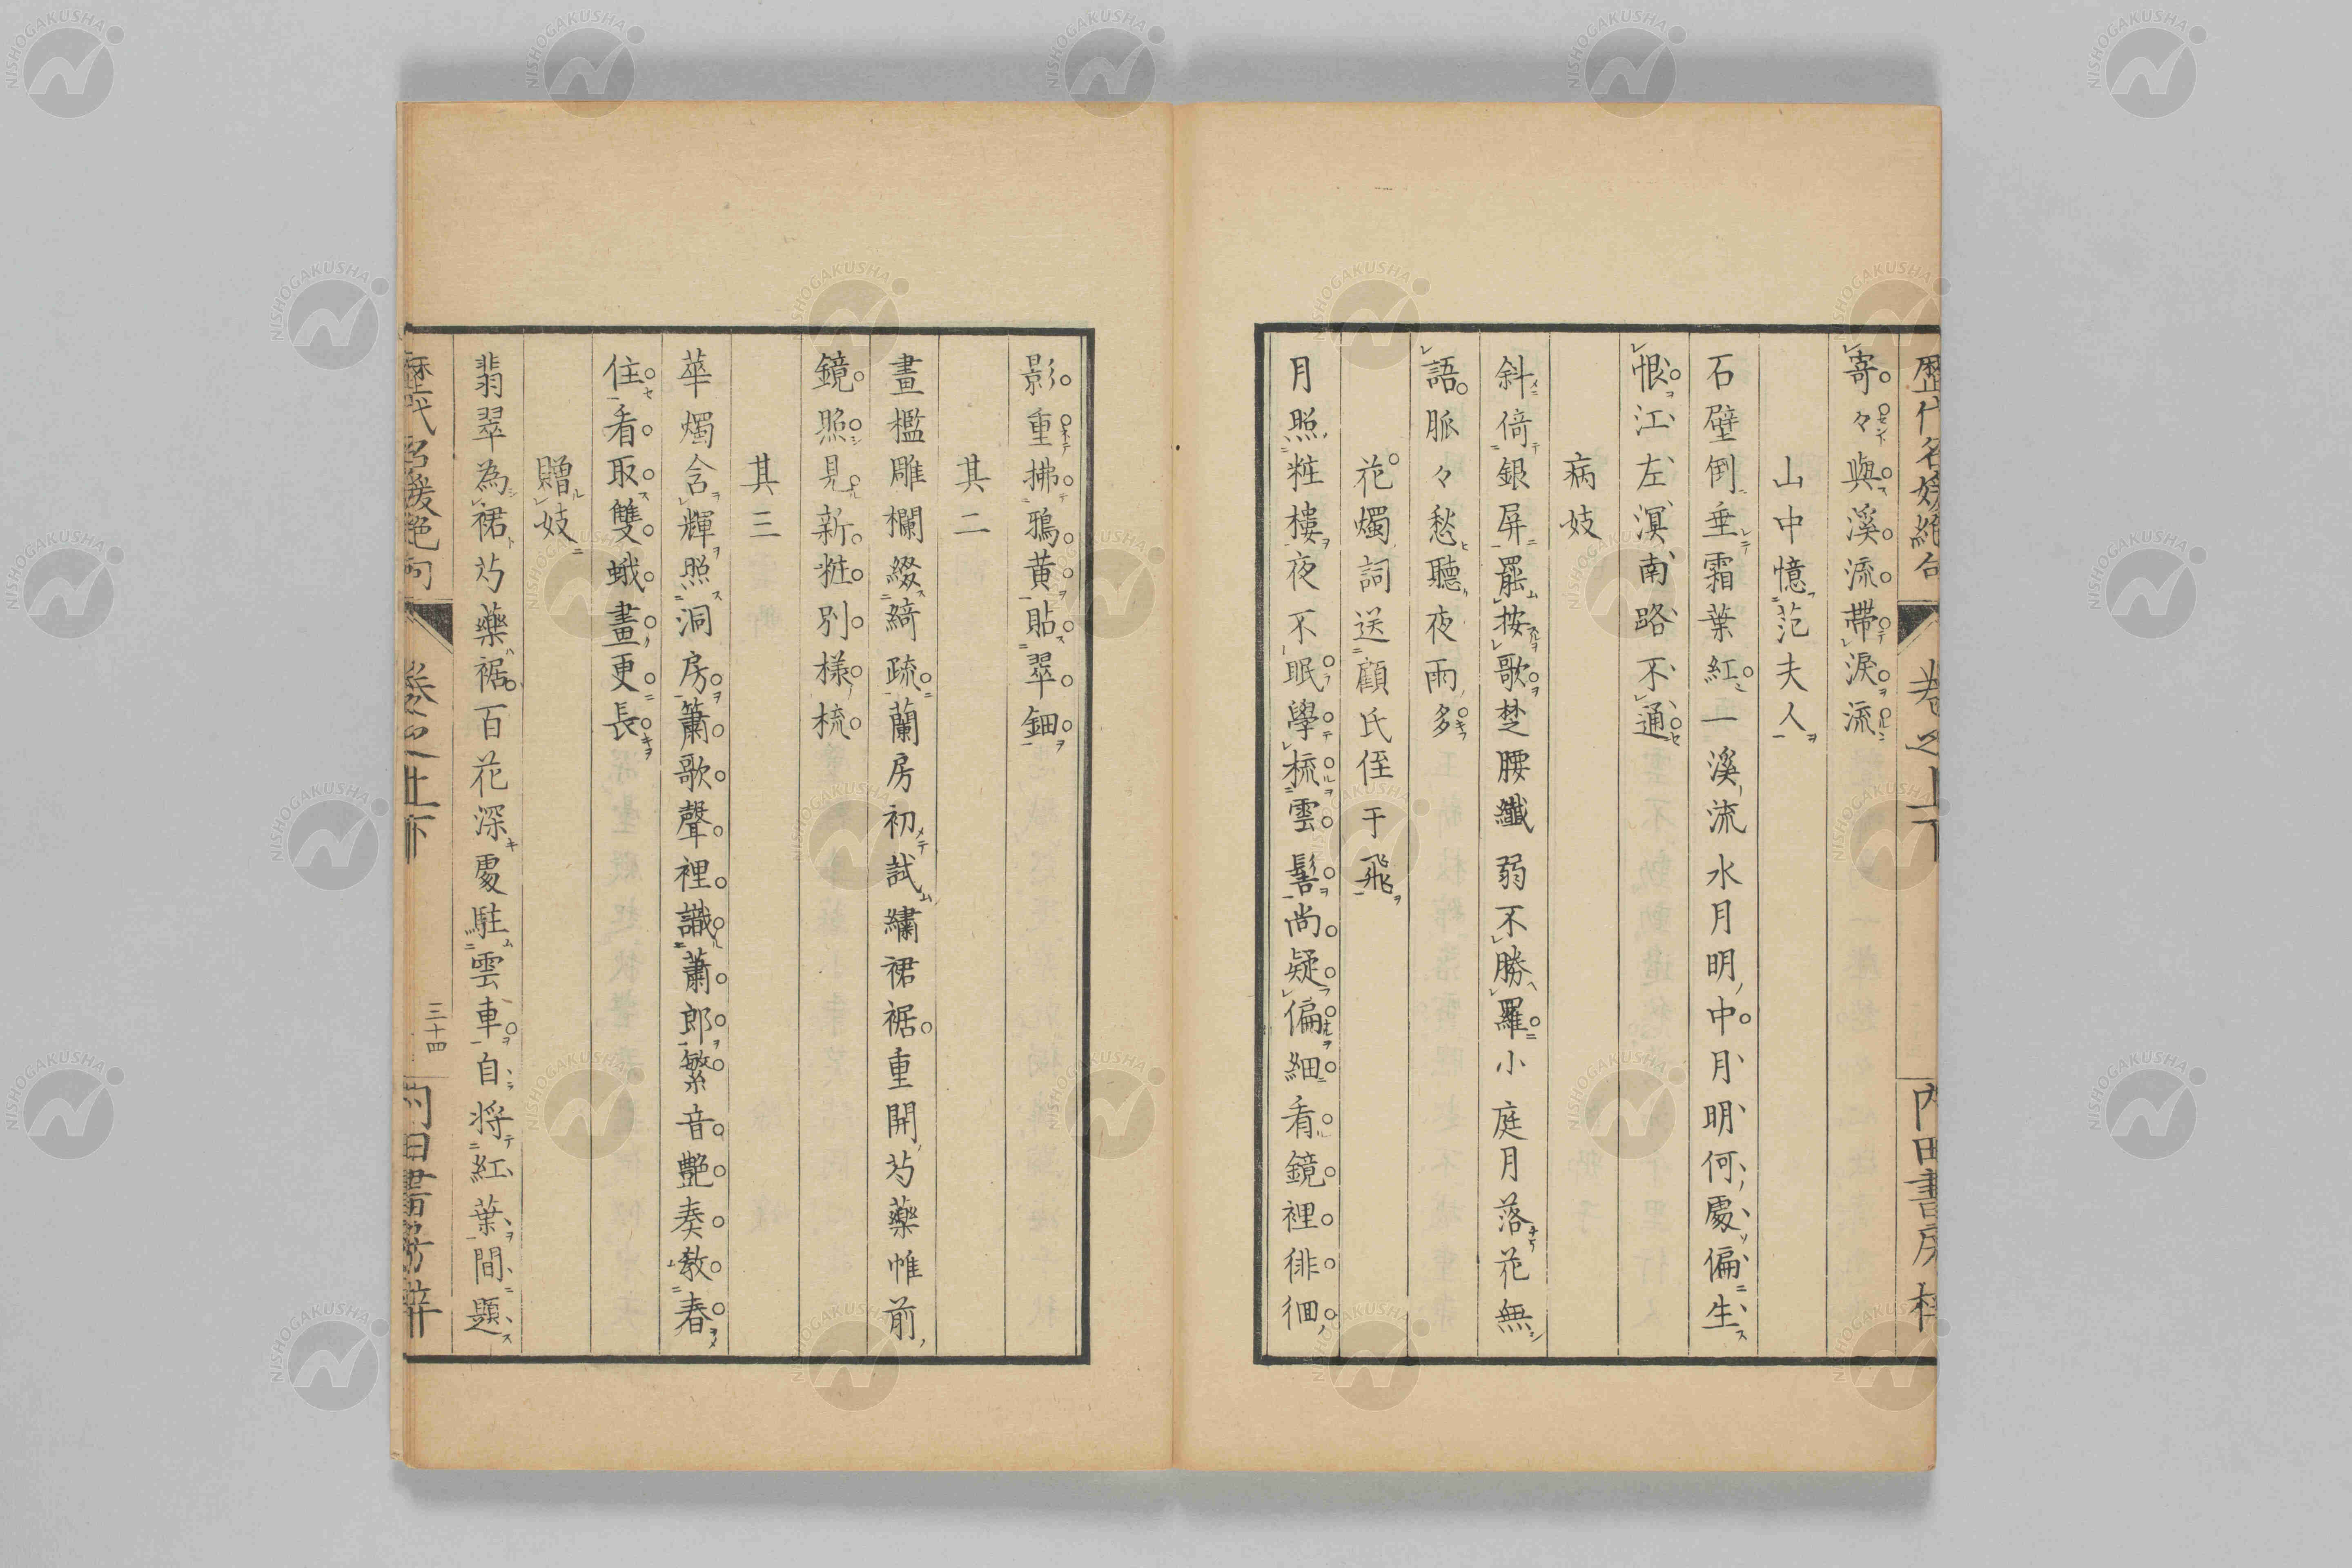 歷代名媛絶句 卷之上下 内田書房梓
寄々與溪流帶淚流
山中憶范夫人
石壁倒垂霜葉紅一溪流水月明中月明何處偏生
恨江左溟南路不通
病妓
斜倚銀屏罷按歌楚腰纖弱不勝羅小庭月落花無
語脈々愁聽夜雨多
花燭詞送顧氏侄于飛
月照粧樓夜不眠學梳雲髻尚疑偏細看鏡裡徘徊
影重拂鴉黃貼翠鈿
其二
畫檻雕欄綴綺疏蘭房初試繡裙裾重開芍藥帷前
鏡照見新粧別樣梳
其三
華燭含輝照洞房簫歌聲裡識蕭郎繁音艷奏教春
住看取雙蛾畫更長
贈妓
翡翠為裙芍藥裾百花深處駐雲車自将紅葉間題
歷代名媛絶句 卷之上下 三十四 内田書房梓
NISHOGAKUSHA